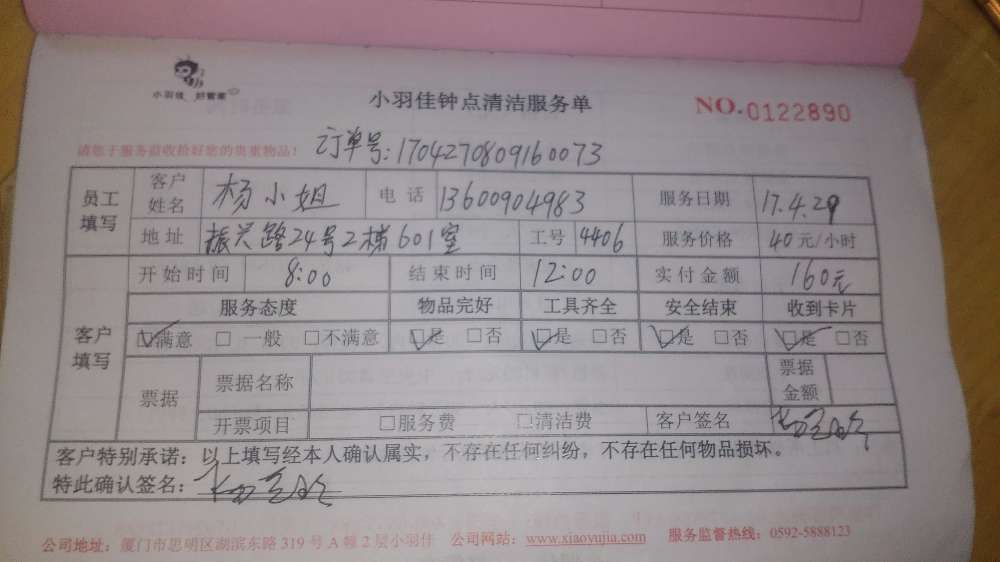 小羽佳 好管家
小羽佳钟点清洁服务单
NO.0122890
请您于服务前收拾好您的贵重物品!
订单号:1704270809160073
员工填写 客户姓名 杨小姐 电话 13600904983 服务日期 17.4.29
地址 振兴路24号2栋601室 工号 4406 服务价格 40元/小时
客户填写 开始时间 8:00 结束时间 12:00 实付金额 160元
服务态度 物品完好 工具齐全 安全结束 收到卡片
☑满意 □一般 □不满意 ☑是 □否 ☑是 □否 ☑是 □否 ☑是 □否
票据 票据名称 票据金额
开票项目 □服务费 □清洁费 客户签名
客户特别承诺:以上填写经本人确认属实,不存在任何纠纷,不存在任何物品损坏。
特此确认签名:
公司地址:厦门市思明区湖滨东路319号A幢2层小羽佳 公司网站:www.xiaoyujia.com 服务监督热线:0592-5888123